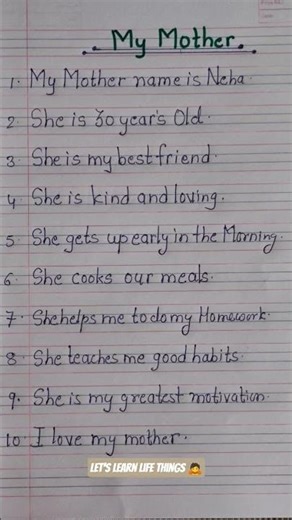 My Mother.
1. My Mother name is Neha.
2. She is 30 year's Old.
3. She is my best friend.
4. She is kind and loving.
5. She gets up early in the Morning.
6. She cooks our meals.
7. She helps me to do my Homework.
8. She teaches me good habits.
9. She is my greatest motivation.
10. I love my mother.
LET'S LEARN LIFE THINGS 🙇